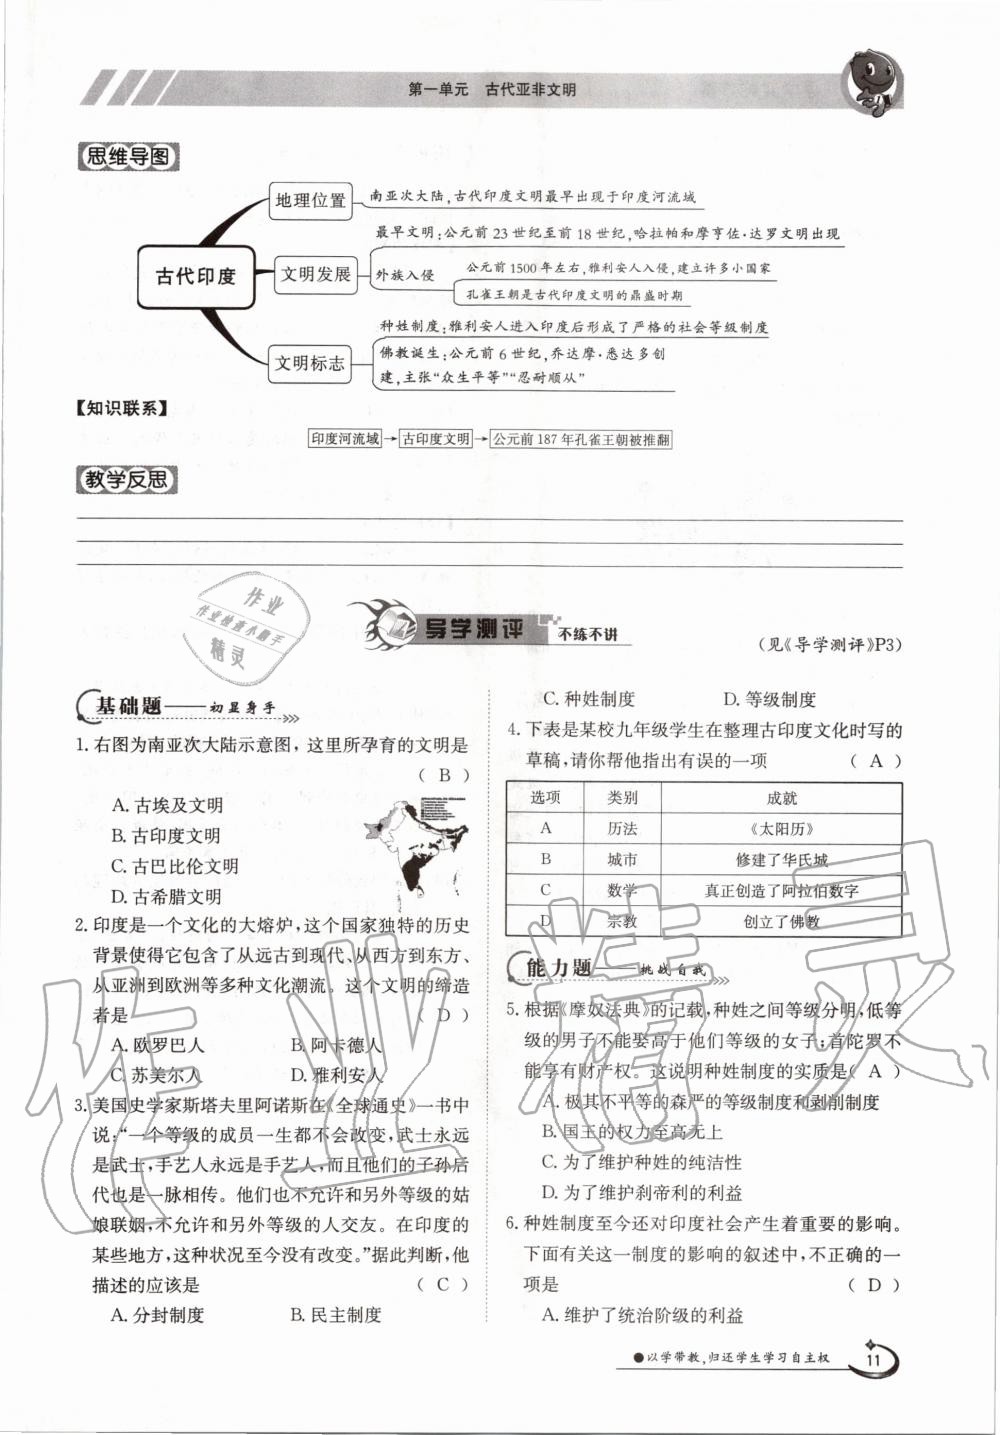 第一单元 古代亚非文明
思维导图
古代印度
地理位置
南亚次大陆,古代印度文明最早出现于印度河流域
文明发展
最早文明:公元前 23 世纪至前 18 世纪,哈拉帕和摩亨佐·达罗文明出现
外族入侵
公元前 1500 年左右,雅利安人入侵,建立许多小国家
孔雀王朝是古代印度文明的鼎盛时期
文明标志
种姓制度:雅利安人进入印度后形成了严格的社会等级制度
佛教诞生:公元前 6 世纪,乔达摩·悉达多创
建,主张“众生平等”“忍耐顺从”
【知识联系】
印度河流域→古印度文明→公元前 187 年孔雀王朝被推翻
教学反思
作业
作业检查小助手
精灵
导学测评 不练不讲
(见《导学测评》P3)
基础题——初显身手
1. 右图为南亚次大陆示意图，这里所孕育的文明是
( B )
A. 古埃及文明
B. 古印度文明
C. 古巴比伦文明
D. 古希腊文明
2. 印度是一个文化的大熔炉,这个国家独特的历史
背景使得它包含了从远古到现代、从西方到东方、
从亚洲到欧洲等多种文化潮流。这个文明的缔造
者是 ( D )
A. 欧罗巴人 B. 阿卡德人
C. 苏美尔人 D. 雅利安人
3. 美国史学家斯塔夫里阿诺斯在《全球通史》一书中
说:“一个等级的成员一生都不会改变,武士永远
是武士,手艺人永远是手艺人,而且他们的子孙后
代也是一脉相传。他们也不允许和另外等级的姑
娘联姻,不允许和另外等级的人交友。在印度的
某些地方,这种状况至今没有改变。”据此判断,他
描述的应该是 ( C )
A. 分封制度 B. 民主制度
C. 种姓制度 D. 等级制度
4. 下表是某校九年级学生在整理古印度文化时写的
草稿,请你帮他指出有误的一项 ( A )
选项 类别 成就
A 历法 《太阳历》
B 城市 修建了华氏城
C 数学 真正创造了阿拉伯数字
D 宗教 创立了佛教
能力题——挑战自我
5. 根据《摩奴法典》的记载,种姓之间等级分明,低等
级的男子不能娶高于他们等级的女子;首陀罗不
能享有财产权。这说明种姓制度的实质是( A )
A. 极其不平等的森严的等级制度和剥削制度
B. 国王的权力至高无上
C. 为了维护种姓的纯洁性
D. 为了维护刹帝利的利益
6. 种姓制度至今还对印度社会产生着重要的影响。
下面有关这一制度的影响的叙述中,不正确的一
项是 ( D )
A. 维护了统治阶级的利益
●以学带教,归还学生学习自主权
11
作业精灵